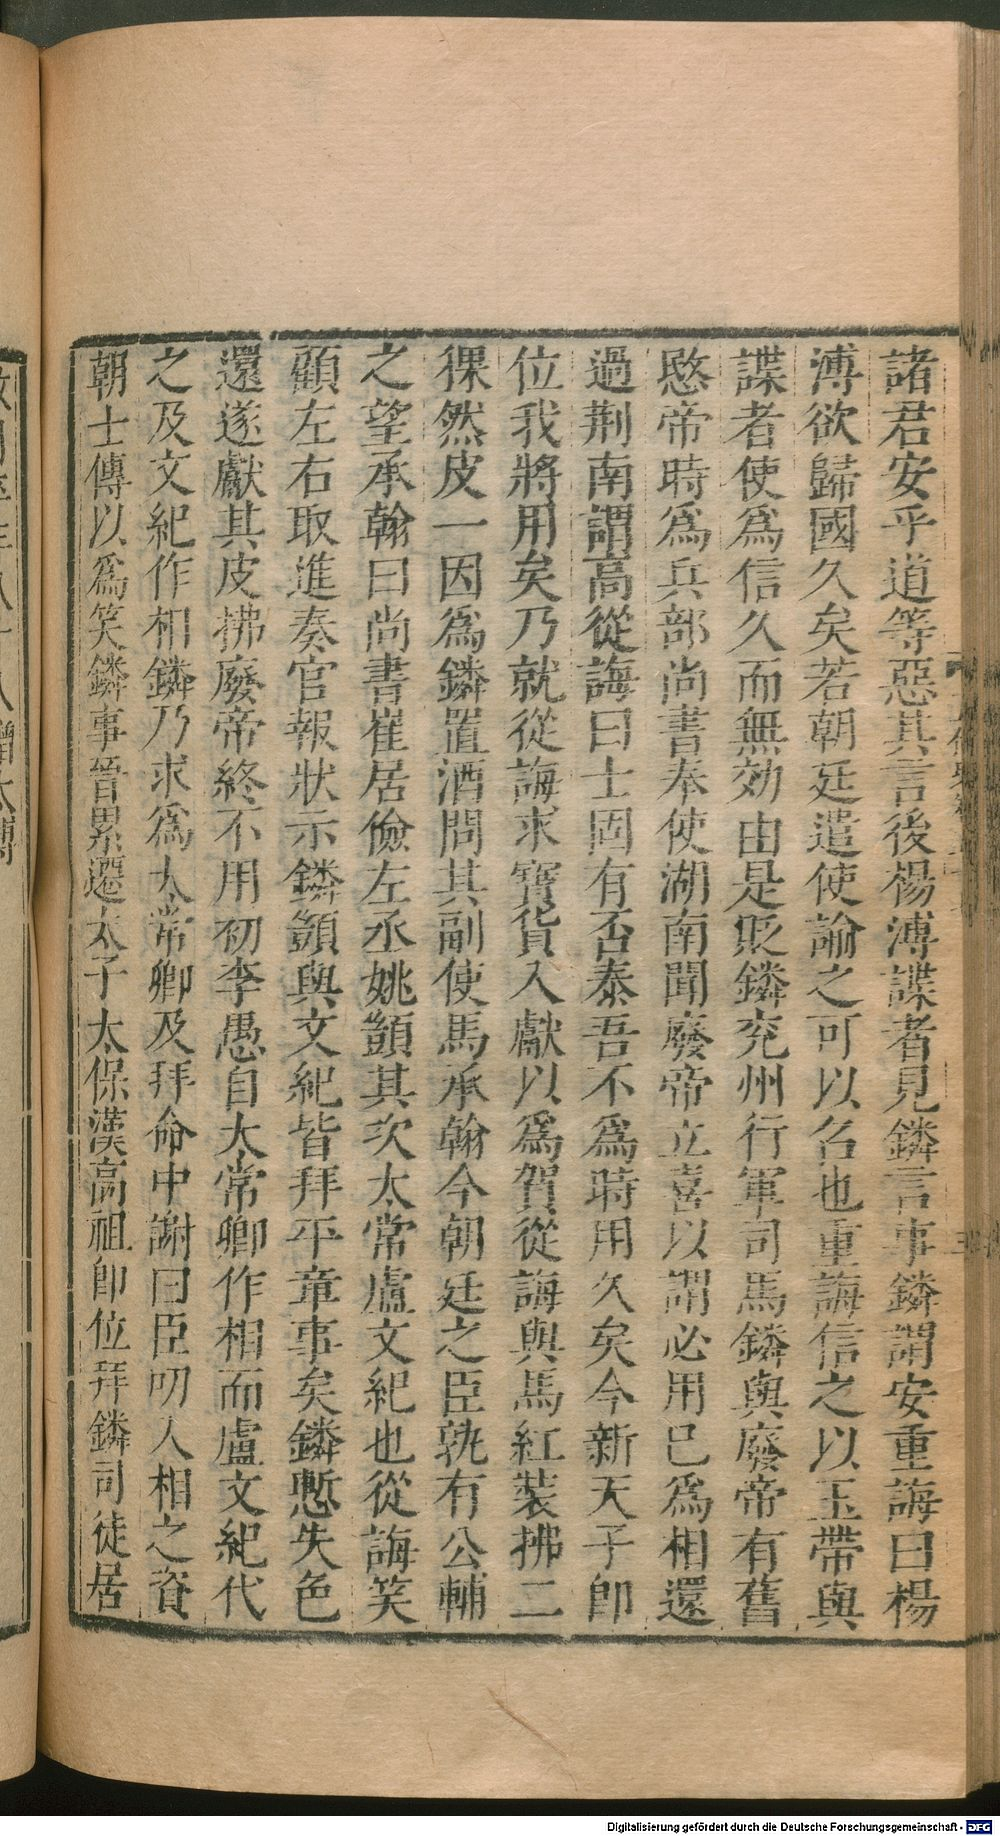 諸君安乎道等惡其言後楊溥諜者見鏻言事鏻謂安重誨曰楊
溥欲歸國久矣若朝廷遣使諭之可以名也重誨信之以玉帶與
諜者使爲信久而無効由是貶鏻兖州行軍司馬鏻與廢帝有舊
愍帝時爲兵部尚書奉使湖南聞廢帝立喜以謂必用已爲相還
過荆南謂高從誨曰士固有否泰吾不爲時用久矣今新天子即
位我將用矣乃就從誨求寶貨入獻以爲賀從誨與馬紅裝拂二
猓然皮一因爲鏻置酒問其副使馬承翰今朝廷之臣孰有公輔
之望承翰曰尚書崔居儉左丞姚顗其次太常盧文紀也從誨笑
顧左右取進奏官報狀示鏻顗與文紀皆拜平章事矣鏻慙失色
還遂獻其皮拂廢帝終不用初李愚自太常卿作相而盧文紀代
之及文紀作相鏻乃求爲太常卿及拜命中謝曰臣叨入相之資
朝士傳以爲笑鏻事晉累遷太子太保漢高祖即位拜鏻司徒居
Digitalisierung gefördert durch die Deutsche Forschungsgemeinschaft - DFG